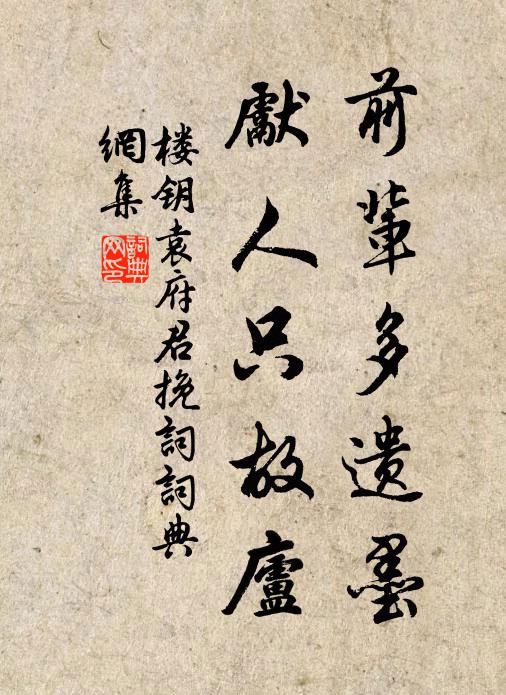 前輩多遺墨
獻人只故廬
楼钥袁府君挽詞詞典
網集
詞典
网印